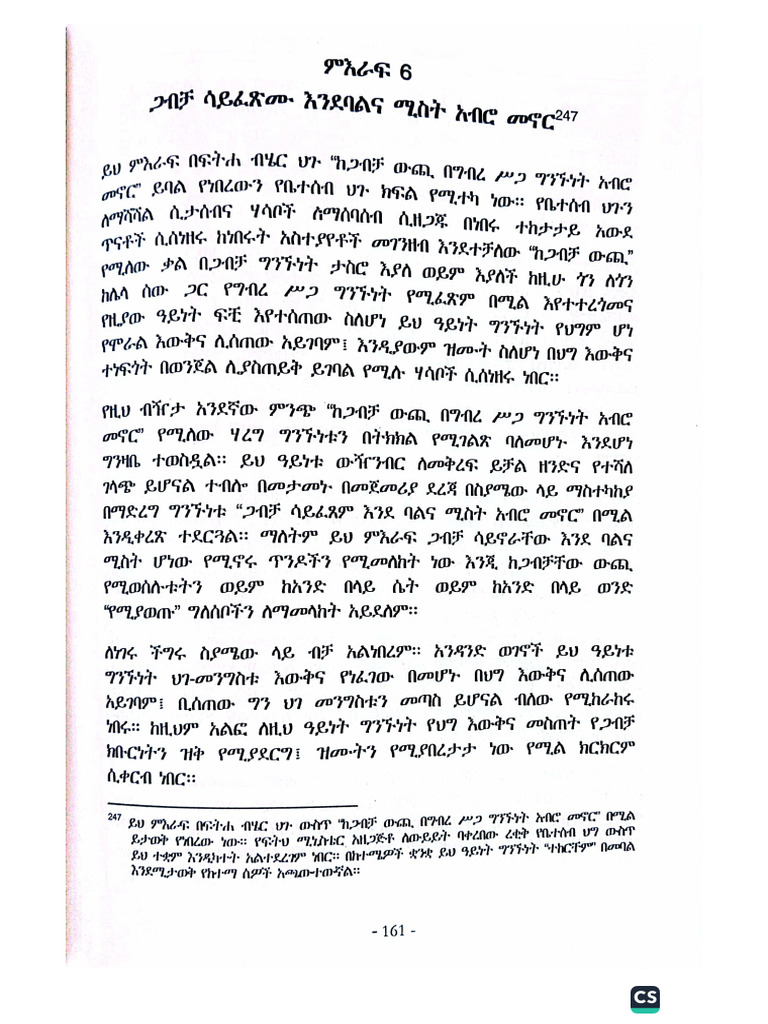 ምእራፍ 6
ጋብቻ ሳይፈጽሙ እንደባልና ሚስት አብሮ መኖር247
ይህ ምእራፍ በፍትሐ ብሄር ህጉ “ከጋብቻ ውጪ በግብረ ሥጋ ግንኙነት አብሮ
መኖር” ይባል የነበረውን የቤተሰብ ህጉ ክፍል የሚተካ ነው። የቤተሰብ ህጉን
ለማሻሻል ሲታሰብና ሃሳቦች ለማሰባሰብ ሲዘጋጁ በነበሩ ተከታታይ አውደ
ጥናቶች ሲሰነዘሩ ከነበሩት አስተያየቶች መገንዘብ እንደተቻለው “ከጋብቻ ውጪ”
የሚለው ቃል በጋብቻ ግንኙነት ታስሮ እያለ ወይም እያለች ከዚሁ ጎን ለጎን
ከሌላ ሰው ጋር የግብረ ሥጋ ግንኙነት የሚፈጽም በሚል እየተተረጎመና
የዚያው ዓይነት ፍቺ እየተሰጠው ስለሆነ ይህ ዓይነት ግንኙነት የህግም ሆነ
የሞራል እውቅና ሊሰጠው አይገባም፤ እንዲያውም ዝሙት ስለሆነ በህግ እውቅና
ተነፍጎት በወንጀል ሊያስጠይቅ ይገባል የሚሉ ሃሳቦች ሲሰነዘሩ ነበር።
የዚህ ብዥታ አንደኛው ምንጭ “ከጋብቻ ውጪ በግብረ ሥጋ ግንኙነት አብሮ
መኖር” የሚለው ሃረግ ግንኙነቱን በትክክል የሚገልጽ ባለመሆኑ እንደሆነ
ግንዛቤ ተወስዷል። ይህ ዓይነቱ ውዥንብር ለመቅረፍ ይቻል ዘንድና የተሻለ
ገላጭ ይሆናል ተብሎ በመታመኑ በመጀመሪያ ደረጃ በስያሜው ላይ ማስተካከያ
በማድረግ ግንኙነቱ “ጋብቻ ሳይፈጸም እንደ ባልና ሚስት አብሮ መኖር” በሚል
እንዲቀረጽ ተደርጓል። ማለትም ይህ ምእራፍ ጋብቻ ሳይኖራቸው እንደ ባልና
ሚስት ሆነው የሚኖሩ ጥንዶችን የሚመለከት ነው እንጂ ከጋብቻቸው ውጪ
የሚወስሉቱትን ወይም ከአንድ በላይ ሴት ወይም ከአንድ በላይ ወንድ
“የሚያወጡ” ግለሰቦችን ለማመላከት አይደለም።
ለነገሩ ችግሩ ስያሜው ላይ ብቻ አልነበረም። አንዳንድ ወገኖች ይህ ዓይነቱ
ግንኙነት ህገ-መንግስቱ እውቅና የነፈገው በመሆኑ በህግ እውቅና ሊሰጠው
አይገባም፤ ቢሰጠው ግን ህገ መንግስቱን መጣስ ይሆናል ብለው የሚከራከሩ
ነበሩ። ከዚህም አልፎ ለዚህ ዓይነት ግንኙነት የህግ እውቅና መስጠት የጋብቻ
ክቡርነትን ዝቅ የሚያደርግ፤ ዝሙትን የሚያበረታታ ነው የሚል ክርክርም
ሲቀርብ ነበር።
247 ይህ ምእራፍ በፍትሐ ብሄር ህጉ ውስጥ “ከጋብቻ ውጪ በግብረ ሥጋ ግንኙነት አብሮ መኖር” በሚል
ይታወቅ የነበረው ነው። የፍትህ ሚኒስቴር አዘጋጅቶ ለውይይት ባቀረበው ረቂቅ የቤተሰብ ህግ ውስጥ
ይህ ተቋም እንዲካተት አልተደረገም ነበር። በከተሜዎች ቋንቋ ይህ ዓይነት ግንኙነት “ተከርቸም” በመባል
እንደሚታወቅ የከተማ ሰዎች አጫውተውኛል።
- 161 -
CS